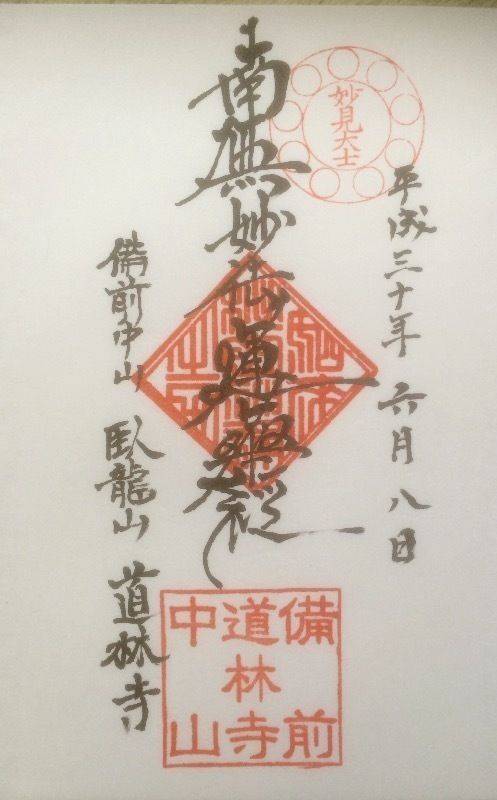 妙見大士
平成三十年六月八日
南無妙法蓮華経
備前中山 臥龍山 道林寺
備前
道林寺
中山